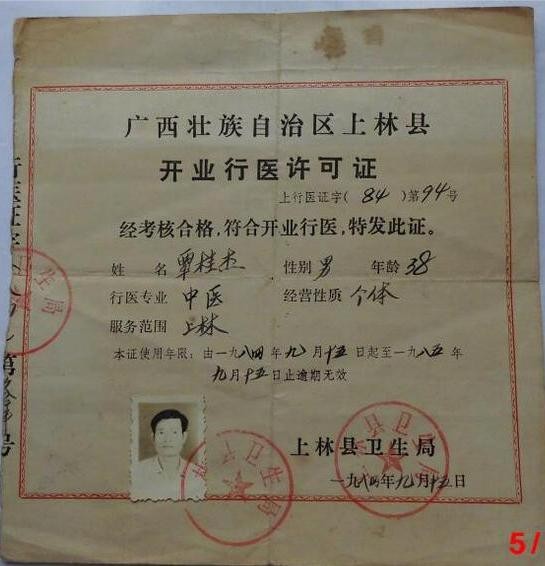 广西壮族自治区上林县
开业行医许可证
上行医证字(84)第94号
经考核合格,符合开业行医,特发此证。
姓名 覃桂杰 性别 男 年龄 38
行医专业 中医 经营性质 个体
服务范围 上林
本证使用年限:由一九八四年九月十五日起至一九八五年
九月十五日止逾期无效
上林县卫生局
一九八四年九月十五日
林县卫生局
县卫生局
生局
第
号
5/